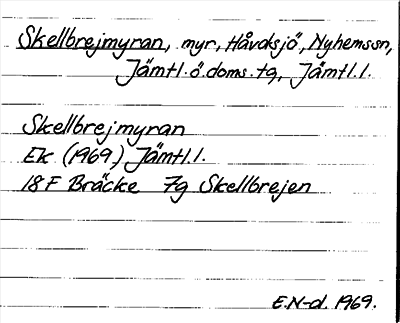 Skellbrejmyran, myr, Håvdsjö, Nyhemssn,
Jämtl.ö.doms.tg, Jämtl.l.
Skellbrejmyran
Ek (1969) Jämtl.l.
18F Bräcke 7g Skellbrejen
E.N-d. 1969.